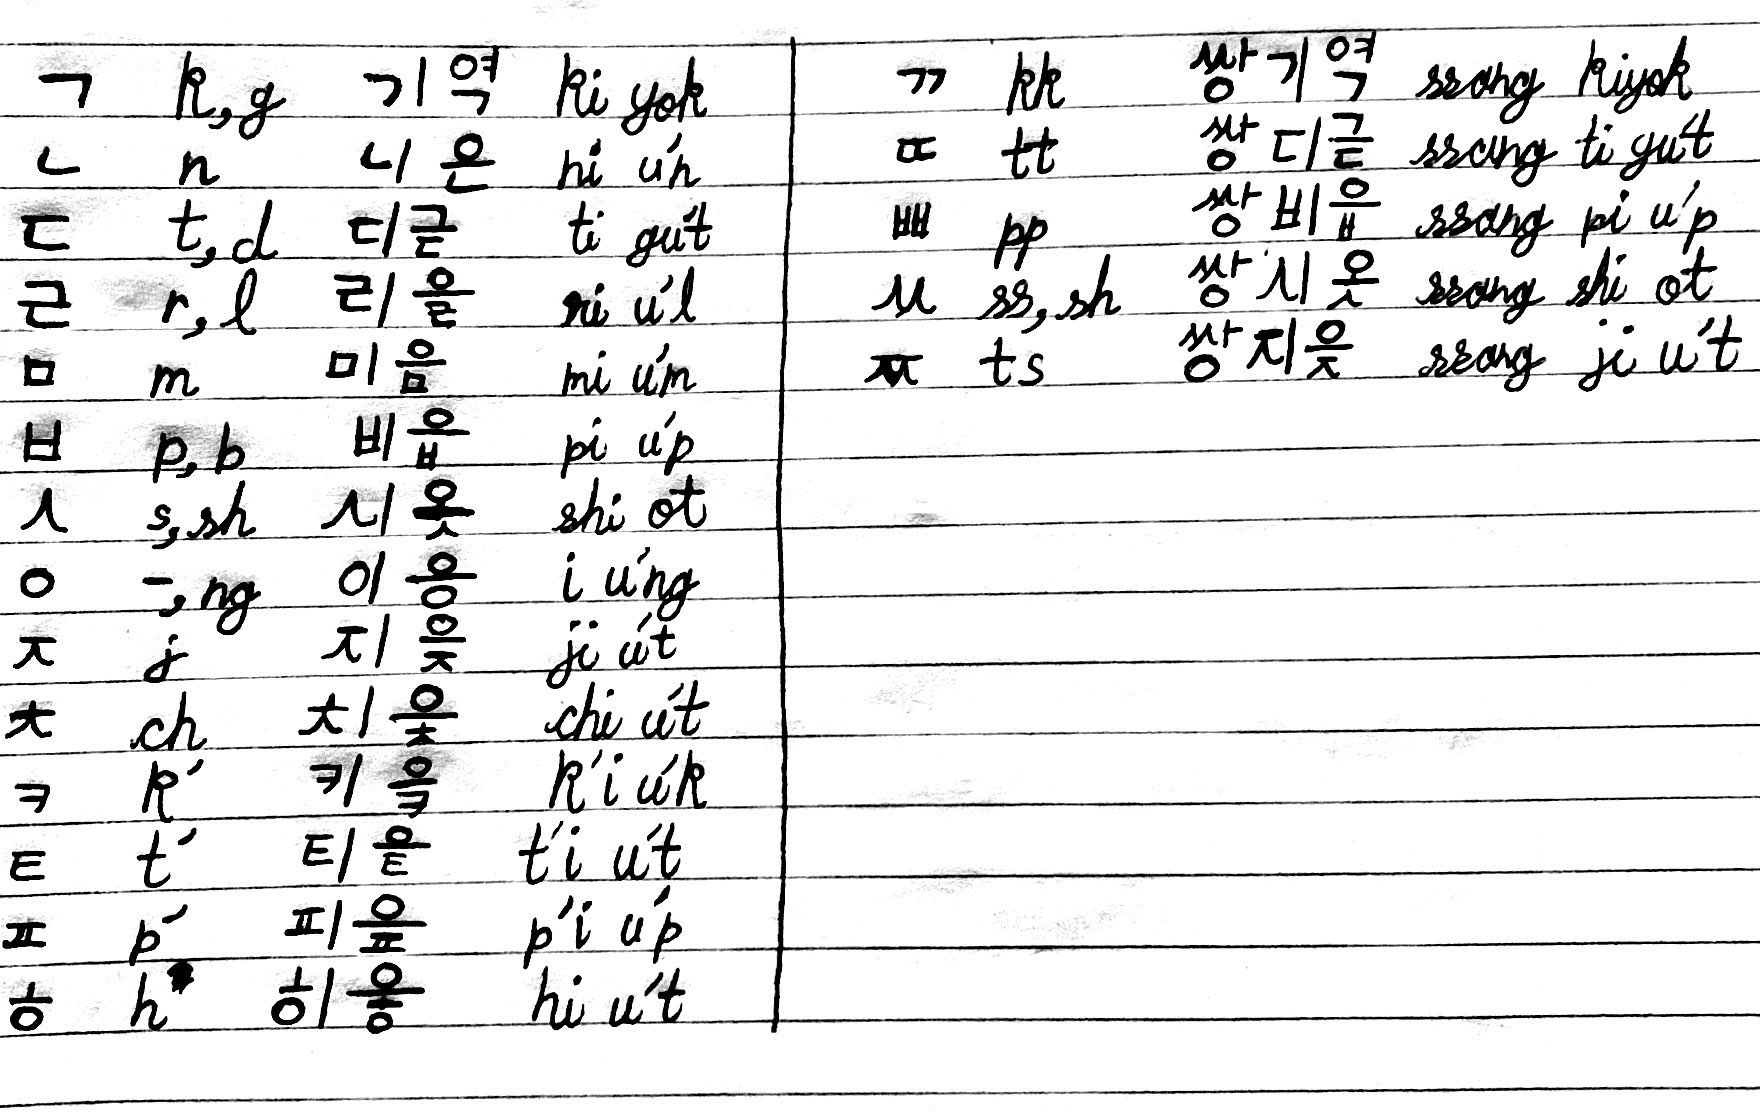 ㄱ k,g 기역 ki yok
ㄴ n 니은 ni ún
ㄷ t,d 디귿 ti gút
ㄹ r,l 리을 ri úl
ㅁ m 미음 mi úm
ㅂ p,b 비읍 pi úp
ㅅ s,sh 시옷 shi ot
ㅇ -,ng 이응 i úng
ㅈ j 지읒 ji út
ㅊ ch 치읓 chi út
ㅋ k' 키읔 k'i úk
ㅌ t' 티읕 t'i út
ㅍ p' 피읖 p'i úp
ㅎ h 히읗 hi út
ㄲ kk 쌍기역 ssang kiyok
ㄸ tt 쌍디귿 ssang ti gút
ㅃ pp 쌍비읍 ssang pi úp
ㅆ ss,sh 쌍시옷 ssang shi ot
ㅉ ts 쌍지읒 ssang ji út